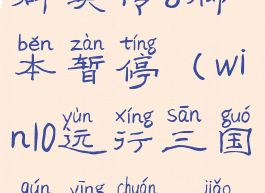 běn zàn tíng
本暂停（wi
yùn xíng sān guó
n10运行三国
qún yīng chuán jiǎn